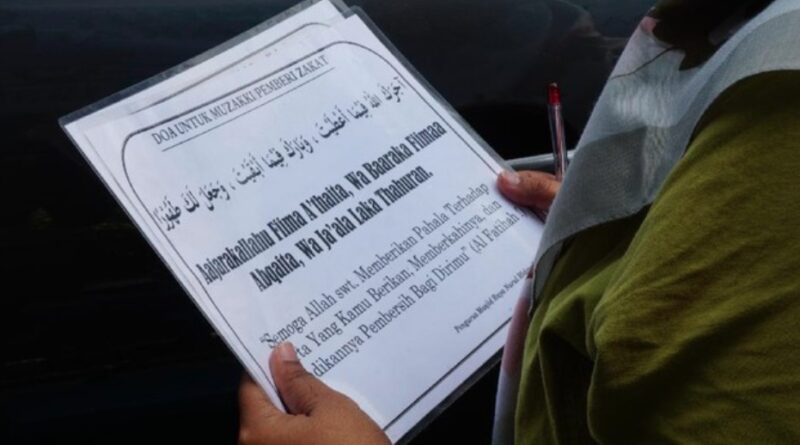 DOA UNTUK MUZAKKI PEMBERI ZAKAT
آجَرَكَ اللهُ فِيْمَا أَعْطَيْتَ ، وَبَارَكَ فِيْمَا أَبْقَيْتَ ، وَجَعَلَ لَكَ طَهُوْرًا
Aajarakallahu Fiima A'thaita, Wa Baaraka Fiimaa
Abqaita, Wa Ja'ala Laka Thahuran.
"Semoga Allah swt. Memberikan Pahala Terhadap
ta Yang Kamu Berikan, Memberkahinya, dan
dikannya Pembersih Bagi Dirimu" (Al Fatihah
Pengurus Masjid